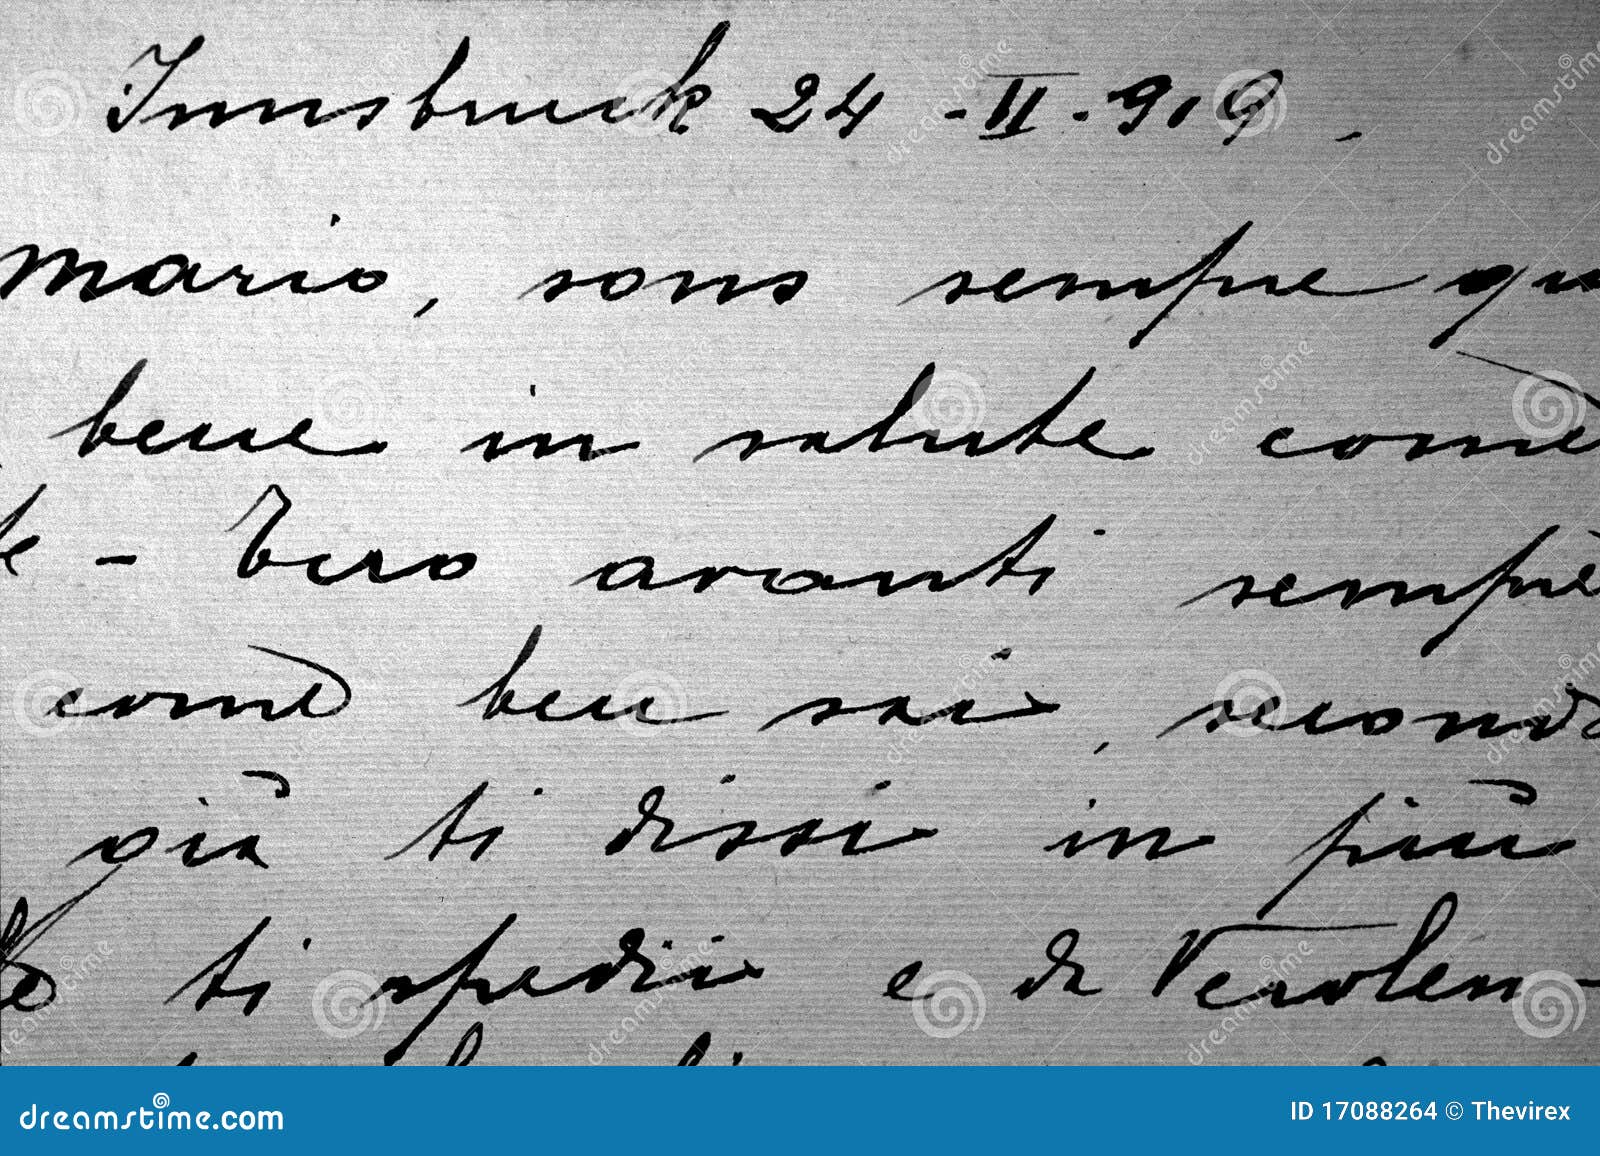 Innsbruck 24 - II - 919.
Mario, sono sempre qu
bene in salute come
te - Tiro avanti sempre
come ben sai, second
già ti dissi in più
ti spedii e da Verolen-
dreamstime.com
ID 17088264 © Thevirex